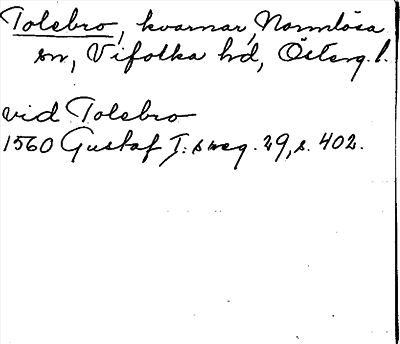 Tolebro, kvarnar, Normlösa
sn, Vifolka hd, Österg. l.
vid Tolebro
1560 Gustaf I:s reg. 29, s. 402.